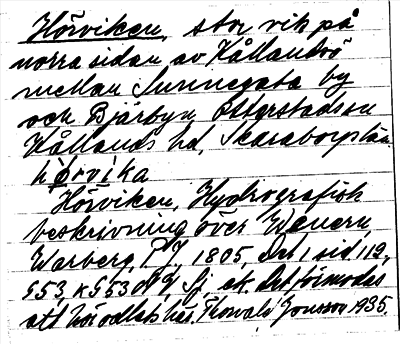 Hörviken, stor vik på
norra sidan av Kållandsö
mellan Sunnegata by
och Bjärbyn Otterstadssn
Kållands hd, Skaraborgslän
hørvika
Hörviken, Hydrografisk
beskrivning över Wenern,
Warberg, P. J. 1805, Del 1 sid 119,
§ 53, ek. Det förmodas
att hör odlats här. Thorvald Jonsson 1935.